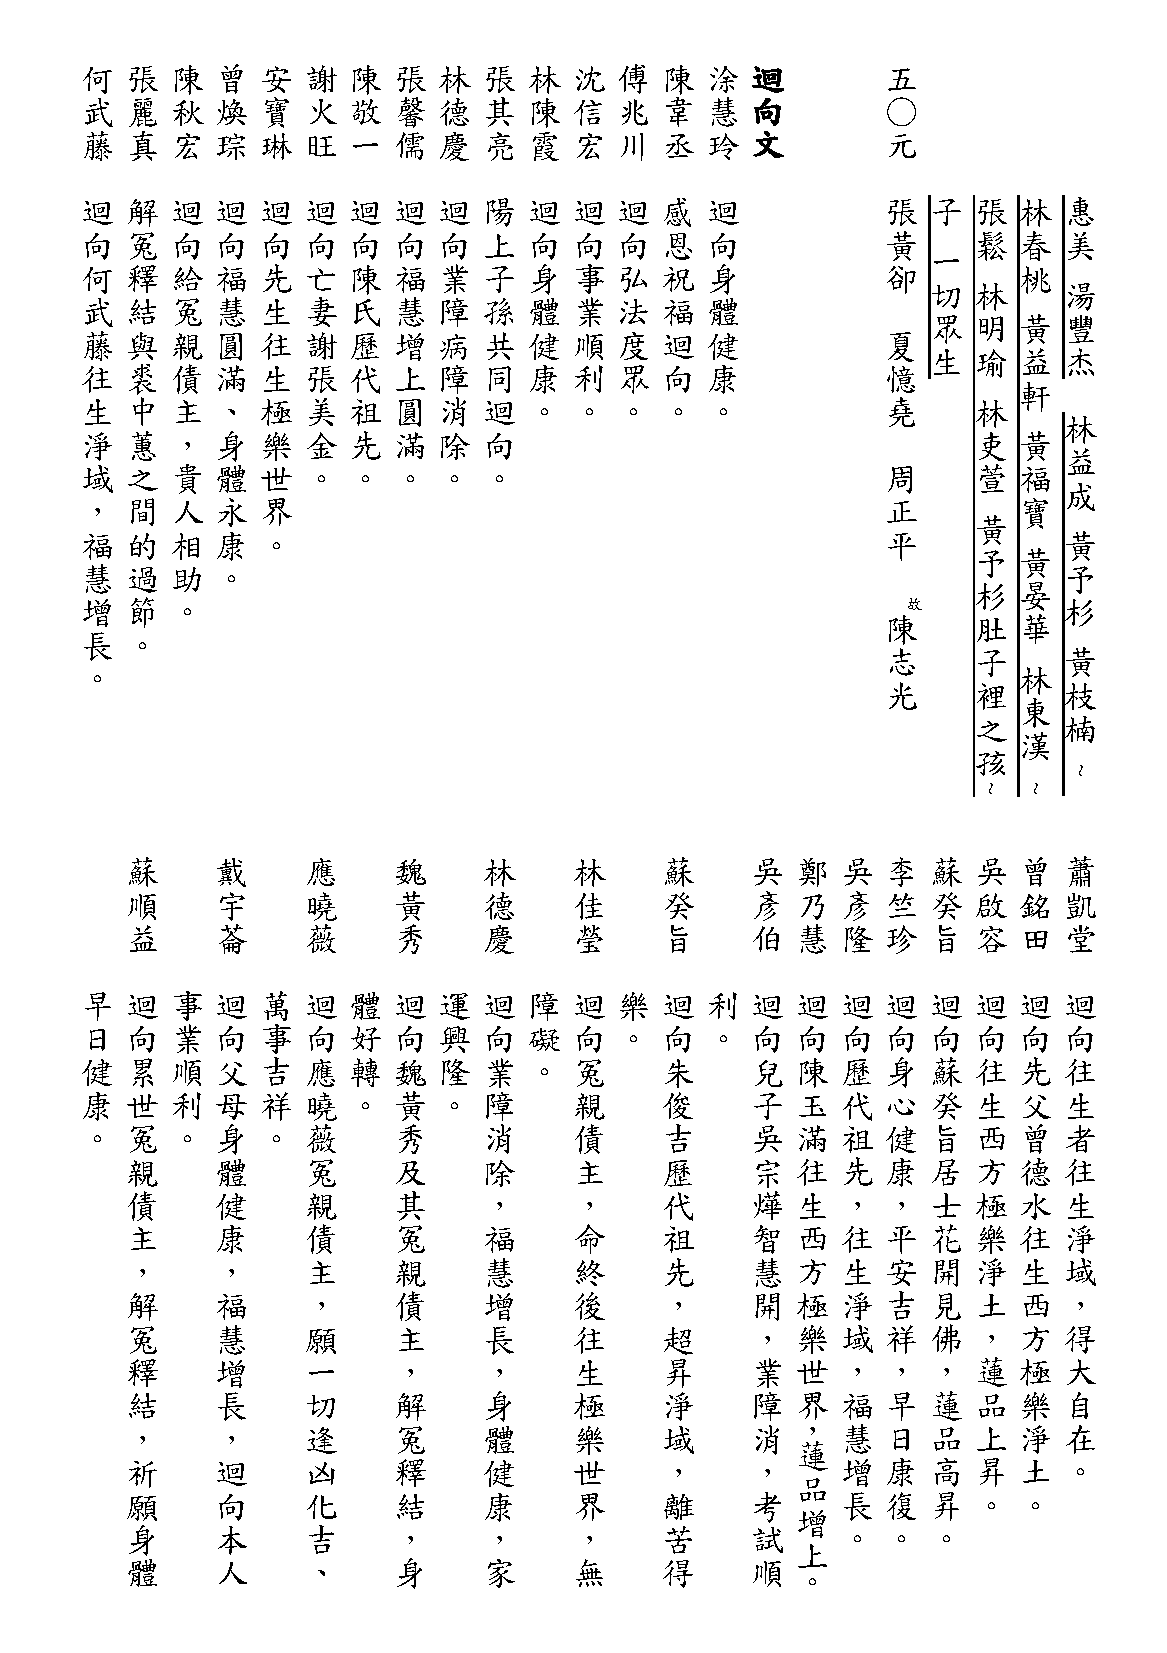 惠美 湯豐杰 林益成 黃予杉 黃枝楠～
林春桃 黃益軒 黃福寶 黃晏華 林東漢～
張鬆 林明瑜 林吏萱 黃予杉肚子裡之孩～
子 一切眾生
五〇元 張黃卻 夏憶堯 周正平 故陳志光
迴向文
涂慧玲 迴向身體健康。
陳韋丞 感恩祝福迴向。
傅兆川 迴向弘法度眾。
沈信宏 迴向事業順利。
林陳霞 迴向身體健康。
張其亮 陽上子孫共同迴向。
林德慶 迴向業障病障消除。
張馨儒 迴向福慧增上圓滿。
陳敬一 迴向陳氏歷代祖先。
謝火旺 迴向亡妻謝張美金。
安寶琳 迴向先生往生極樂世界。
曾煥琮 迴向福慧圓滿、身體永康。
陳秋宏 迴向給冤親債主，貴人相助。
張麗真 解冤釋結與裘中蕙之間的過節。
何武藤 迴向何武藤往生淨域，福慧增長。
蕭凱堂 迴向往生者往生淨域，得大自在。
曾銘田 迴向先父曾德水往生西方極樂淨土。
吳啟容 迴向往生西方極樂淨土，蓮品上昇。
蘇癸旨 迴向蘇癸旨居士花開見佛，蓮品高昇。
李竺珍 迴向身心健康，平安吉祥，早日康復。
吳彥隆 迴向歷代祖先，往生淨域，福慧增長。
鄭乃慧 迴向陳玉滿往生西方極樂世界，蓮品增上。
吳彥伯 迴向兒子吳宗燁智慧開，業障消，考試順
利。
蘇癸旨 迴向朱俊吉歷代祖先，超昇淨域，離苦得
樂。
林佳瑩 迴向冤親債主，命終後往生極樂世界，無
障礙。
林德慶 迴向業障消除，福慧增長，身體健康，家
運興隆。
魏黃秀 迴向魏黃秀及其冤親債主，解冤釋結，身
體好轉。
應曉薇 迴向應曉薇冤親債主，願一切逢凶化吉、
萬事吉祥。
戴宇菕 迴向父母身體健康，福慧增長，迴向本人
事業順利。
蘇順益 迴向累世冤親債主，解冤釋結，祈願身體
早日健康。